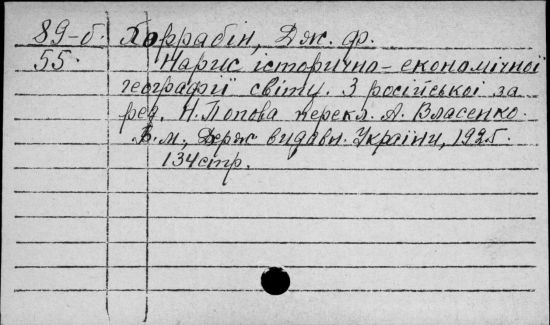 89-б. Хоррабін, Дж. Ф.
55. Нарис історично-економічної
географії світу. З російської за
ред. Н. Попова перекл. А. Власенко.
В. м., Держ видавн. України, 1925.
134 стр.